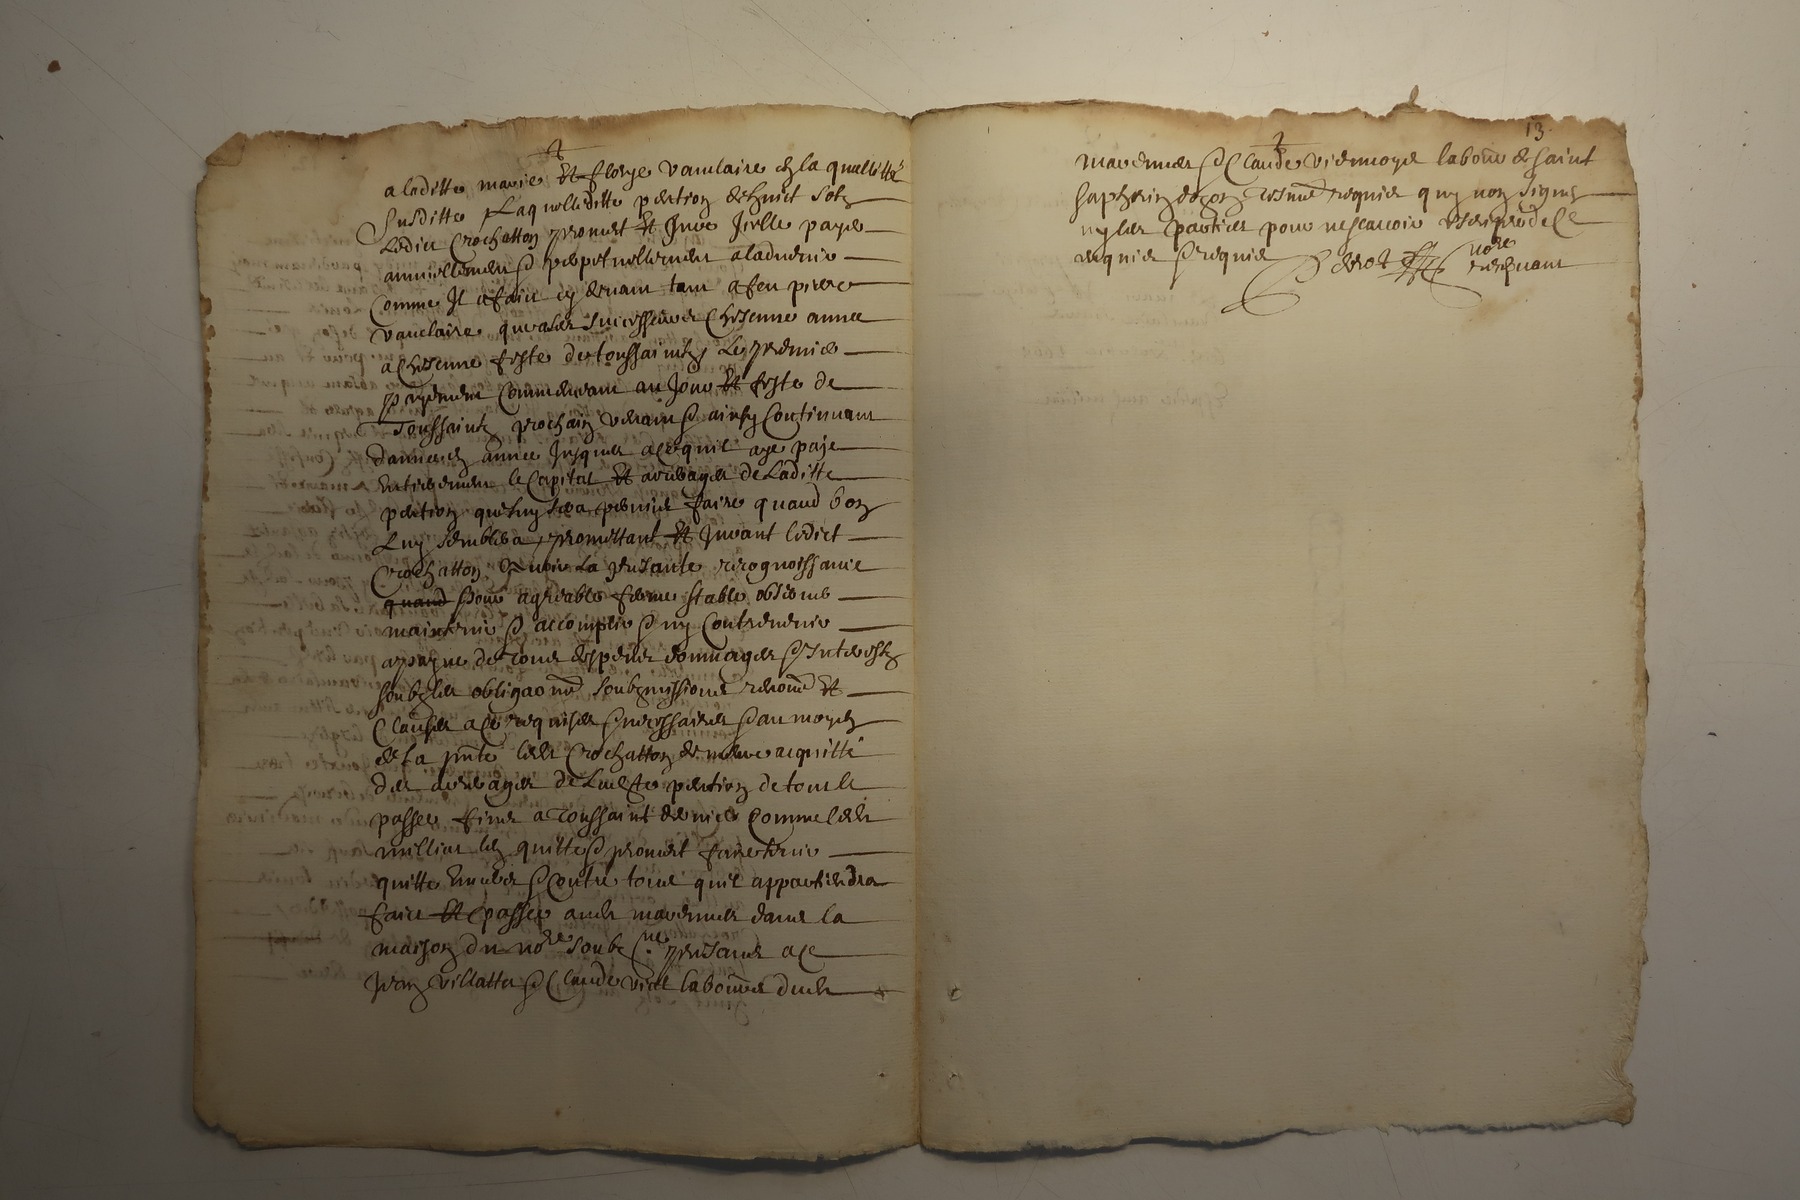 a laditte marie et florye vauclaire en la quallitté
susditte laquelleditte pention de huict solz
Ledict Crochatton promet et Jure Jcelle payer
annuellement & perpetuellement a ladvenir
Comme Jl a faict cy devant tant a feu pierre
vauclaire que a ses successeurs Chescune annee
a Chescune feste de toussaintz Le premier
payement Commencant au Jour et feste de
Toussaintz prochain venant & ainsy Continuant
dannee en annee Jusques a ce quil aye paye
Entierement le Capital et arrerages de Laditte
pention que luy sera permis faire quand bon
Luy semblera, promettant et Jurant ledict
Crochatton avoir La presante recognoissance
quand pour agreable ferme stable observer
maintenir & accomplir & ny Contrevenir
a payne de tous despens dommages & Interestz
soubz les obligaons soubzmissions renons et
Clauses a ce requises & necessaires & au moyen
de la pnte ledit Crochatton demeure acquitté
des arrerages de Laditte pention de tout le
passe finie a Toussaint dernier Comme ledit
millier len quitte & promet faire tenir
quitte Envers & Contre tous quil appartiendra
faict et passe audit marcennes dans la
maison du nore soubz ne presents a ce
Jean villatte & Claude viel laboures dudit
13
marcennes & Claude viennoys laboure de saint
saphorin dozon tesmns requis quy non signe
ny les parties pour ne scavoir de ce
requis & requis nore
recepvant